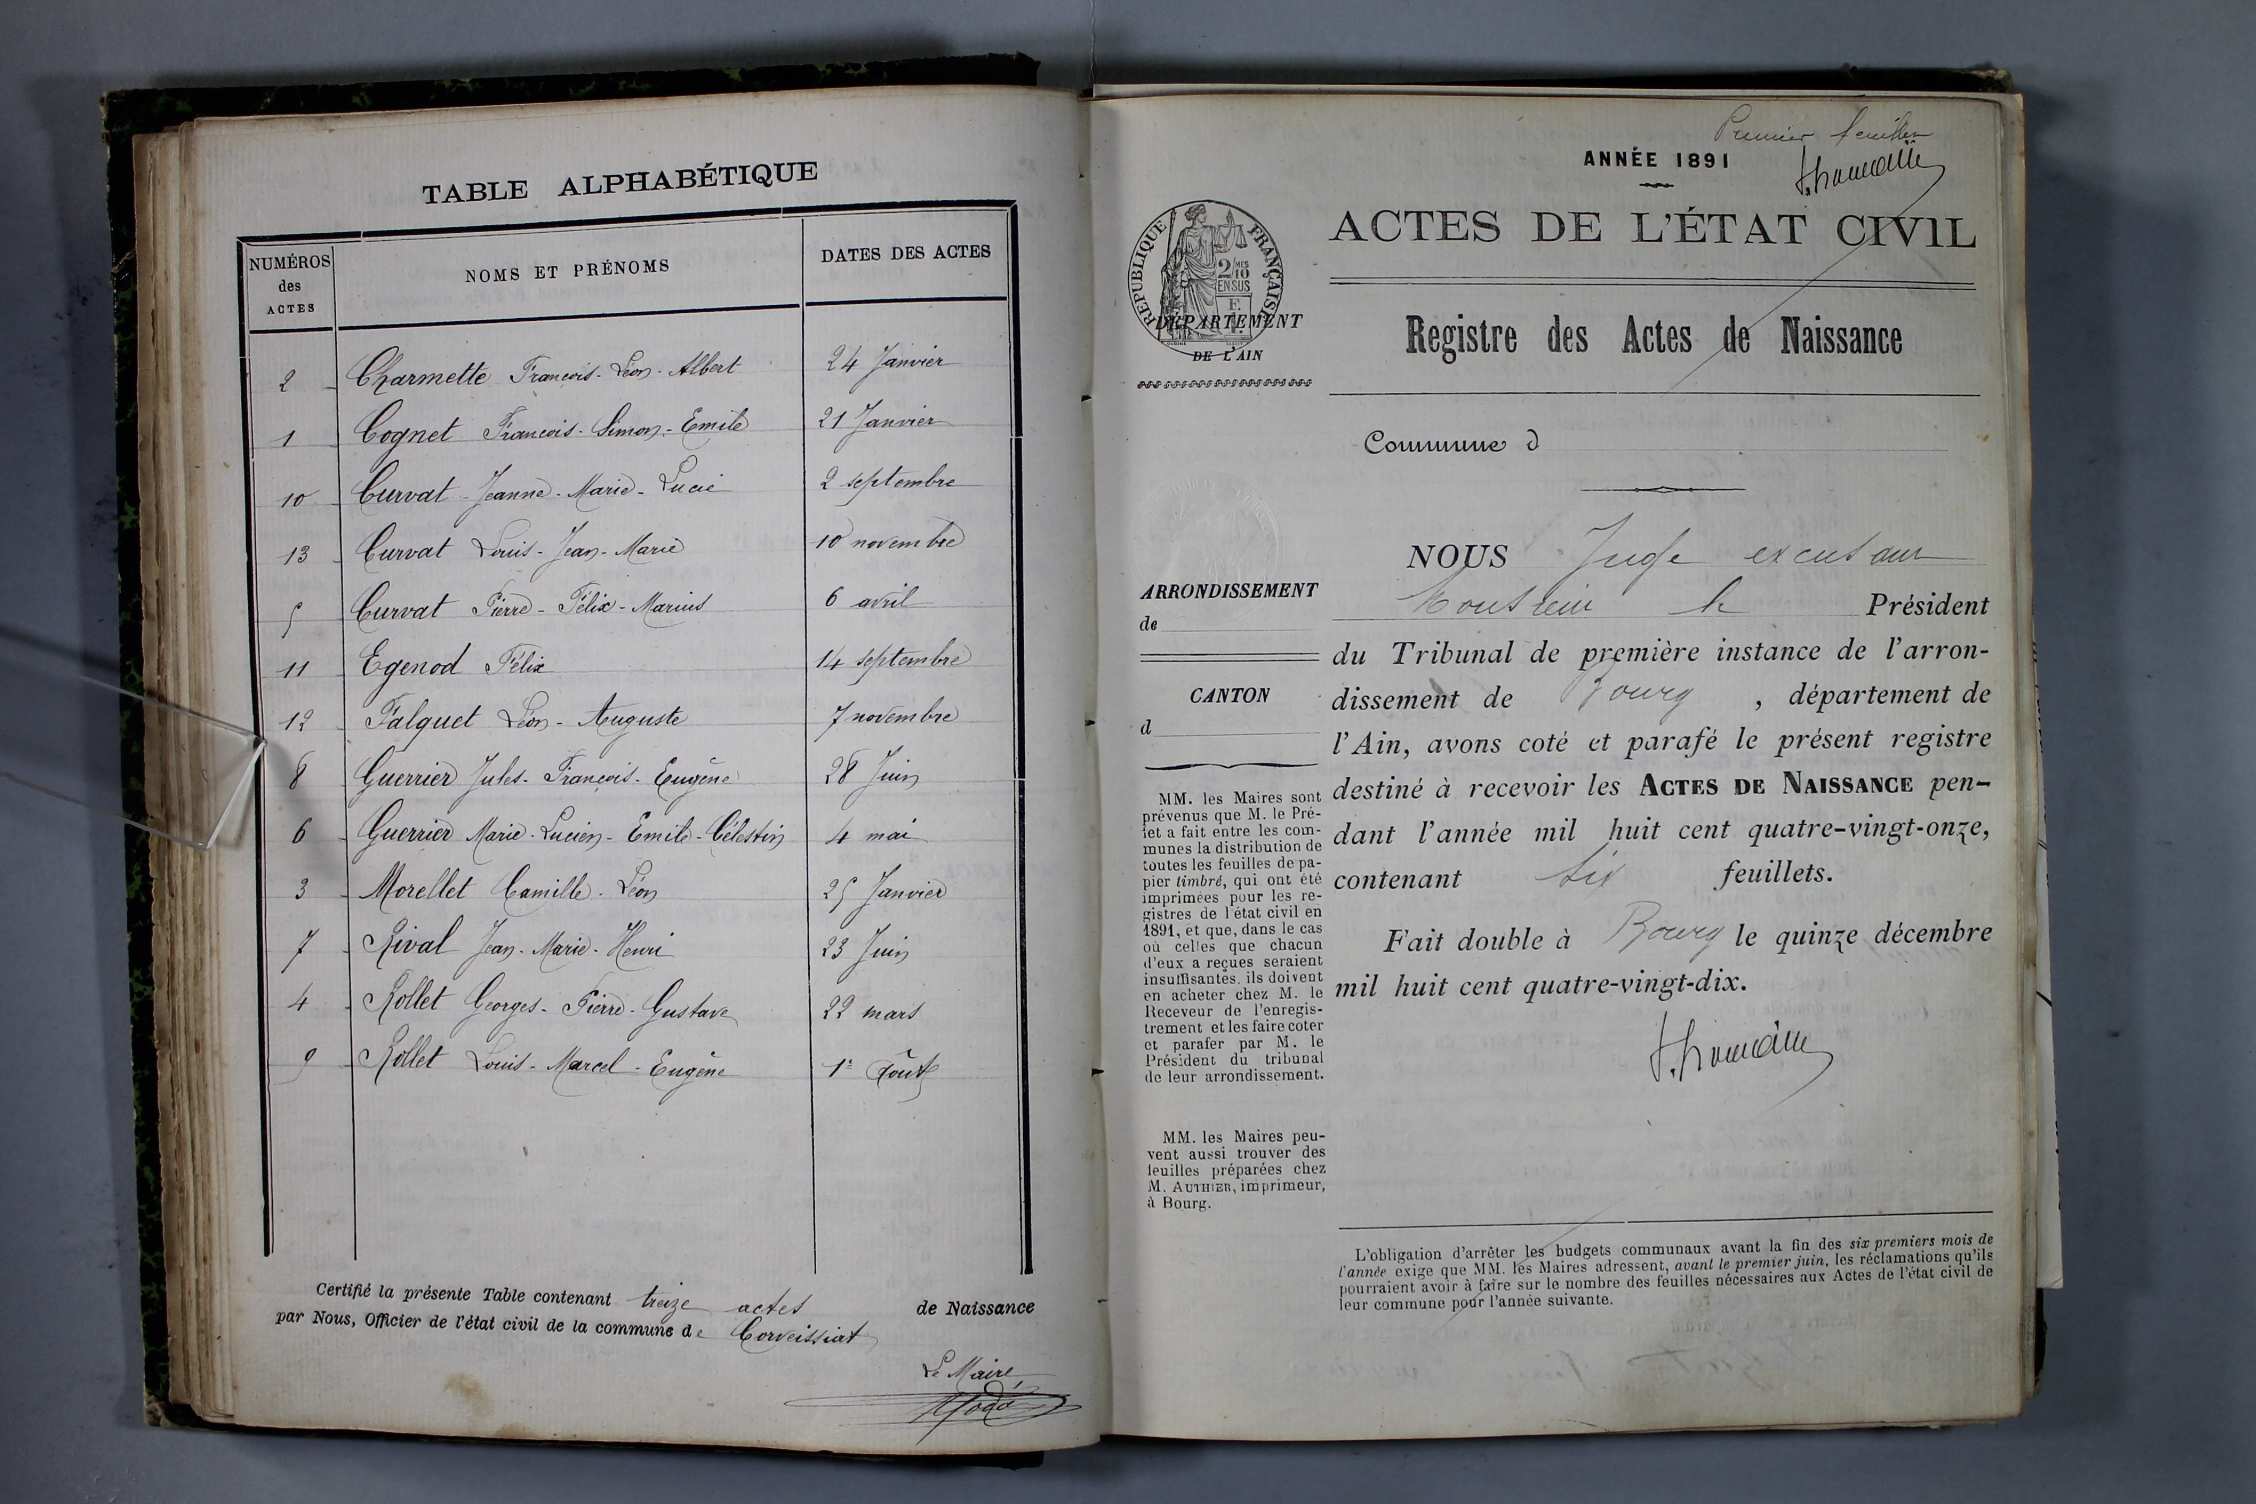 TABLE ALPHABÉTIQUE
NUMÉROS des ACTES
NOMS ET PRÉNOMS
DATES DES ACTES
2 Charmette François-Léon-Albert 24 Janvier
1 Cognet François-Simon-Emile 21 Janvier
10 Curvat Jeanne-Marie-Lucie 2 septembre
13 Curvat Louis-Jean-Marie 10 novembre
5 Curvat Pierre-Félix-Marius 6 avril
11 Egenod Félix 14 septembre
12 Falquet Léon-Auguste 7 novembre
8 Guerrier Jules-François-Eugène 28 Juin
6 Guerrier Marie-Lucien-Emile-Célestin 4 mai
3 Morellet Camille-Léon 25 Janvier
7 Rival Jean-Marie-Henri 23 Juin
4 Rollet Georges-Pierre-Gustave 22 mars
9 Rollet Louis-Marcel-Eugène 1er Août
Certifié la présente Table contenant treize actes de Naissance
par Nous, Officier de l'état civil de la commune de Corveissiat
Le Maire
Premier feuillet
ANNÉE 1891
ACTES DE L'ÉTAT CIVIL
RÉPUBLIQUE FRANÇAISE
2/10 MES
EN SUS
DÉPARTEMENT
DE L'AIN
Registre des Actes de Naissance
Commune d
ARRONDISSEMENT
de
CANTON
d
MM. les Maires sont
prévenus que M. le Pré-
fet a fait entre les com-
munes la distribution de
toutes les feuilles de pa-
pier timbré, qui ont été
imprimées pour les re-
gistres de l'état civil en
1891, et que, dans le cas
où celles que chacun
d'eux a reçues seraient
insuffisantes, ils doivent
en acheter chez M. le
Receveur de l'enregis-
trement et les faire coter
et parafer par M. le
Président du tribunal
de leur arrondissement.
MM. les Maires peu-
vent aussi trouver des
feuilles préparées chez
M. AUTHIER, imprimeur,
à Bourg.
NOUS Juge
Président
du Tribunal de première instance de l'arron-
dissement de Bourg, département de
l'Ain, avons coté et parafé le présent registre
destiné à recevoir les ACTES DE NAISSANCE pen-
dant l'année mil huit cent quatre-vingt-onze,
contenant six feuillets.
Fait double à Bourg le quinze décembre
mil huit cent quatre-vingt-dix.
L'obligation d'arrêter les budgets communaux avant la fin des six premiers mois de
l'année exige que MM. les Maires adressent, avant le premier juin, les réclamations qu'ils
pourraient avoir à faire sur le nombre des feuilles nécessaires aux Actes de l'état civil de
leur commune pour l'année suivante.